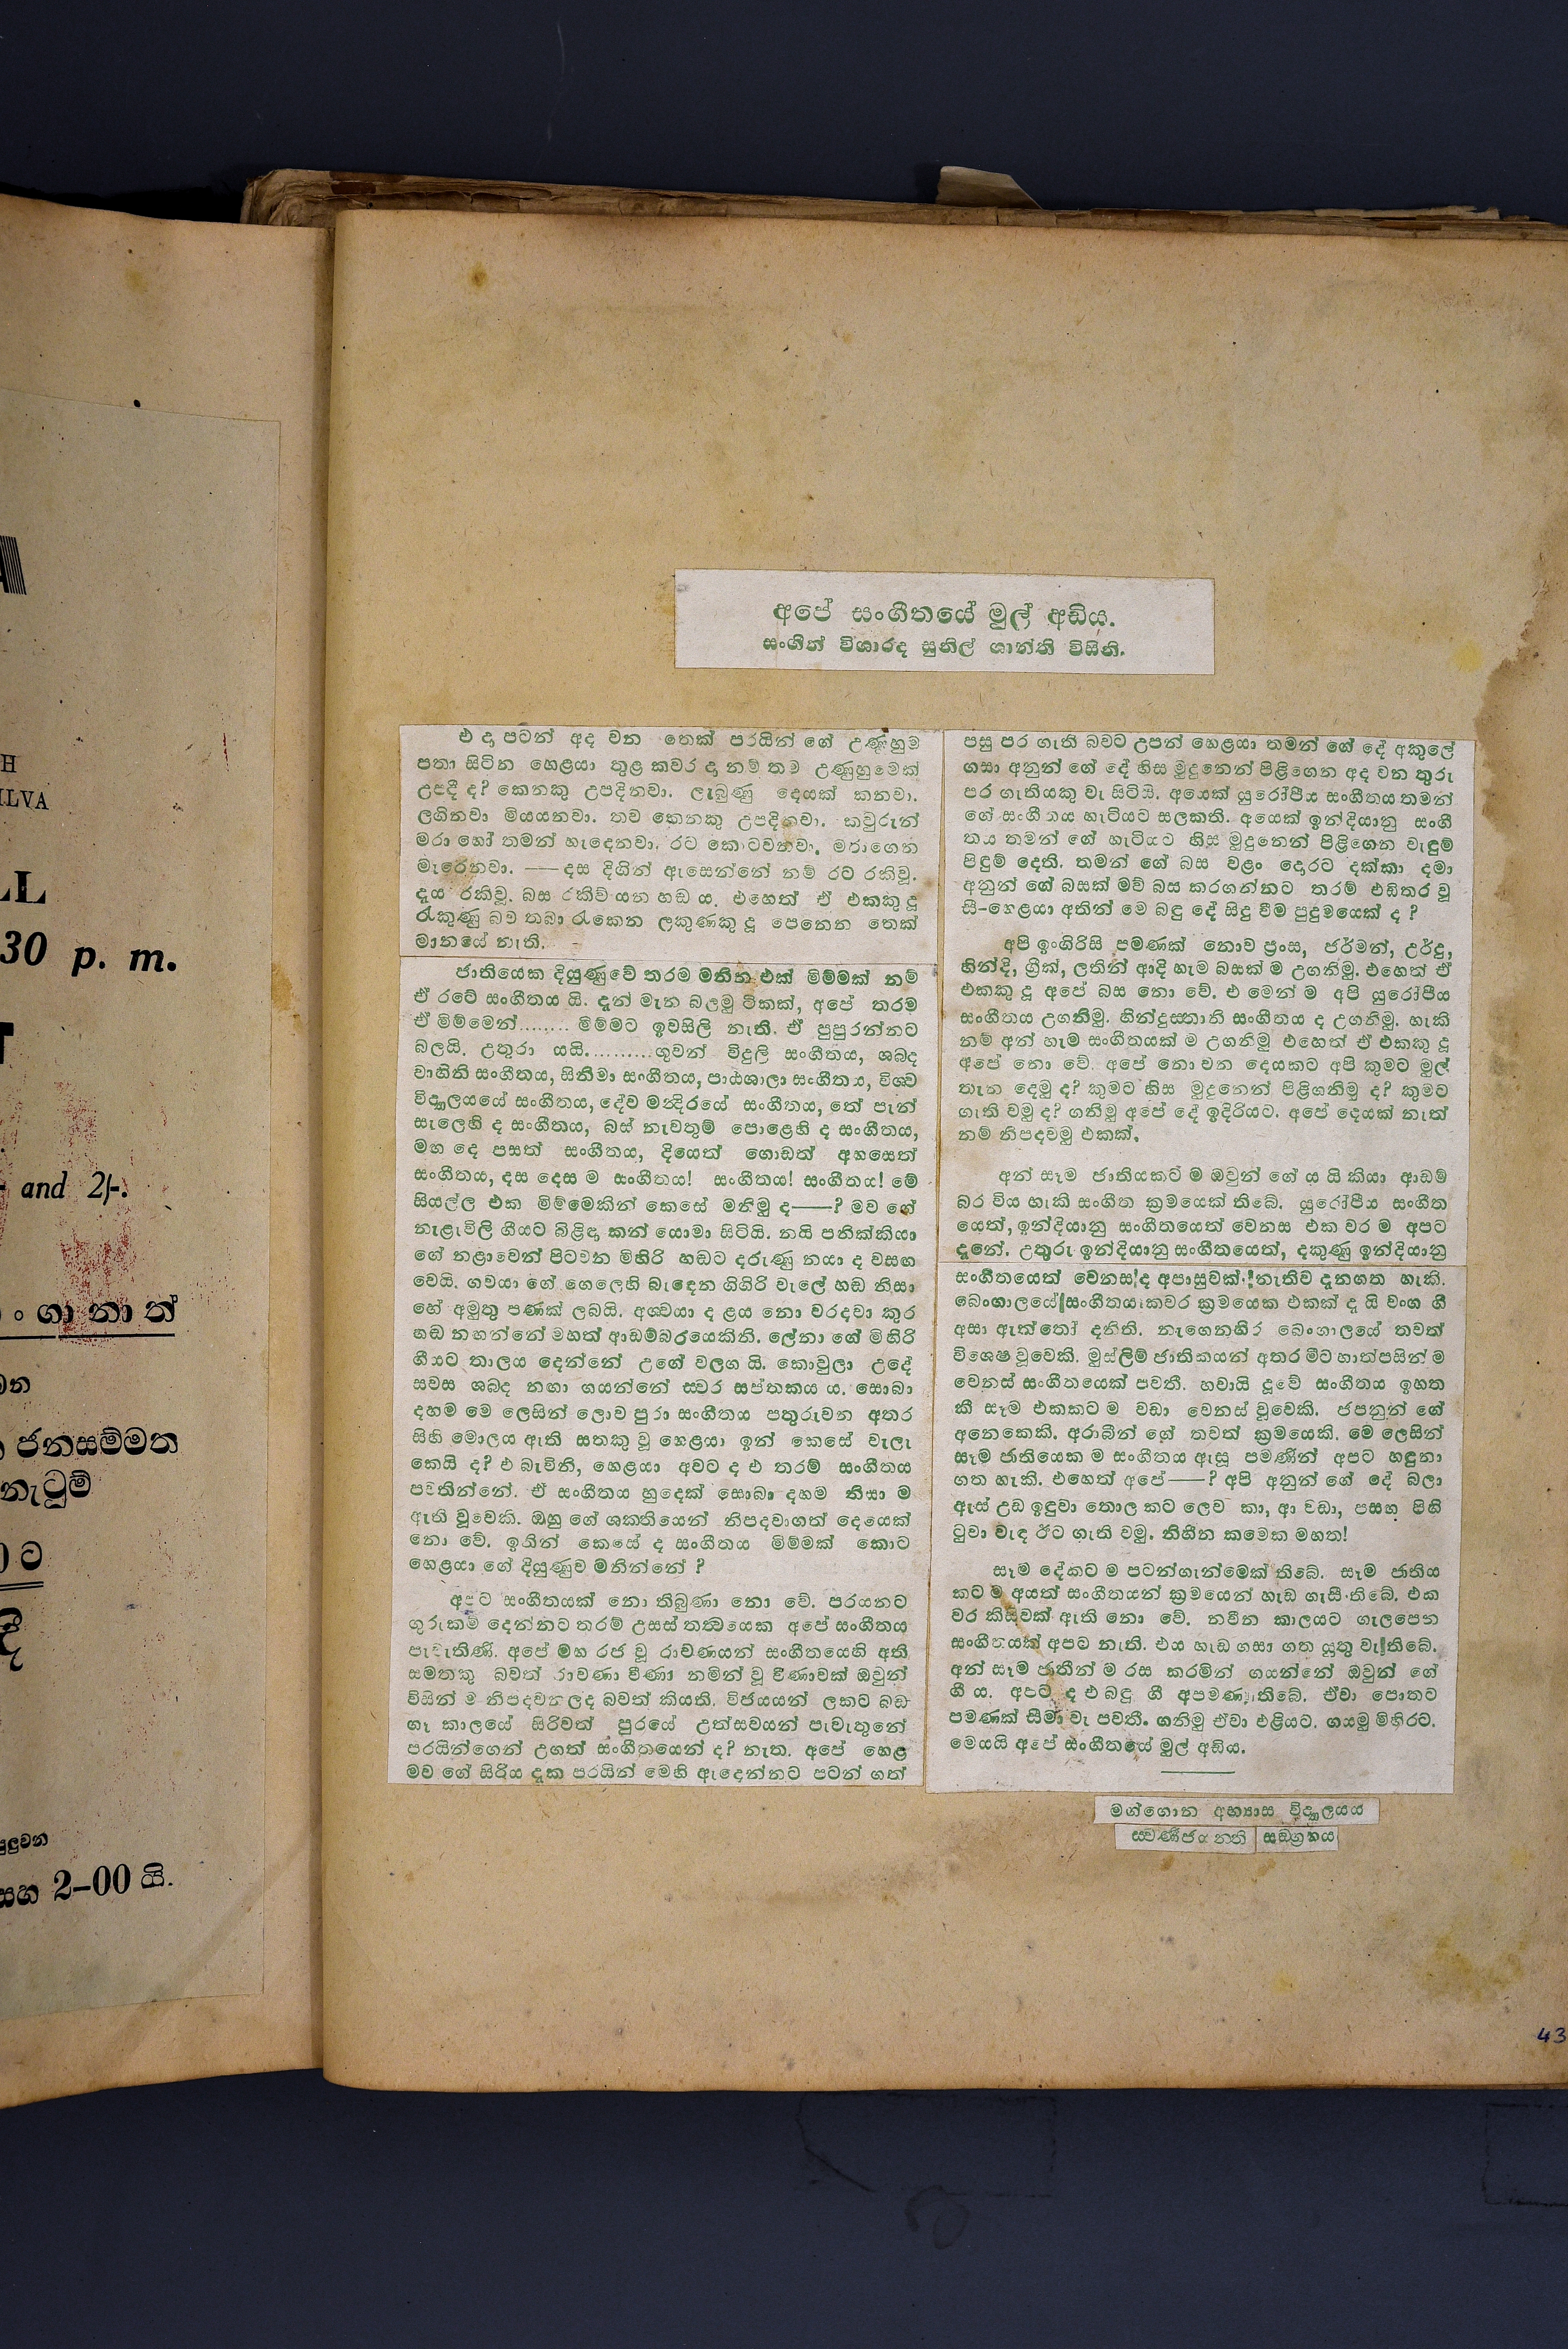 H
ILVA
LL
30 p. m.
and 2/-.
ං ගා නා ත්
ජනසම්මත
නැටුම්
ට
සහ 2–00 යි.
අපේ සංගීතයේ මුල් අඩිය.
සංගීත් විශාරද සුනිල් ශාන්ති විසිනි.
එ ද පටන් අද වන තෙක් පරයින් ගේ උණුහුම
පතා සිටින හෙළයා තුළ කවර ද නම් තම උණුහුමෙක්
උපදී ද? කෙනකු උපදිනවා. ලැබුණු දෙයක් කනවා.
ලගිනවා මියයනවා. තව කෙනකු උපදිනවා. කවුරුන්
මරා හෝ තමන් හැදෙනවා, රට කොටවනවා, මරාගෙන
මැරෙනවා. —— දස දිගින් ඇසෙන්නේ නම් රට රකිවූ.
දැය රකිවූ. බස රකිව් යන හඬ ය. එහෙත් ඒ එකකු දු
රැකුණු බව තබා රැකෙන ලකුණකු දු පෙනෙන තෙක්
මානයේ නැති.
ජාතියෙක දියුණුවේ තරම මනින එක් මිම්මක් නම්
ඒ රටේ සංගීතය යි. දැන් මැන බලමු ටිකක්, අපේ තරම
ඒ මිම්මෙන්........ මිම්මට ඉවසිලි නැති. ඒ පුපුරන්නට
බලයි. උතුරා යයි..........ගුවන් විදුලි සංගීතය, ශබ්ද
වාහිනි සංගීතය, සිනීමා සංගීතය, පාඨශාලා සංගීතය, විශ්ව
විද්‍යාලයයේ සංගීතය, දේව මන්දිරයේ සංගීතය, තේ පැන්
සැලෙහි ද සංගීතය, බස් නැවතුම් පොළෙහි ද සංගීතය,
මහ දෙ පසත් සංගීතය, දියෙත් ගොඩත් අහසෙත්
සංගීතය, දස දෙස ම සංගීතය! සංගීතය! සංගීතය! මේ
සියල්ල එක මිම්මෙකින් කෙසේ මනිමු ද——? මව ගේ
නැළැවිලි ගීයට බිළිඳා කන් යොමා සිටියි. නයි පනික්කියා
ගේ නළාවෙන් පිටවන මිහිරි හඬට දරුණු නයා ද වසඟ
වෙයි. ගවයා ගේ ගෙලෙහි බැඳෙන ගිගිරි වැලේ හඬ නිසා
හේ අමුතු පණක් ලබයි. අශ්වයා ද ළය නො වරදවා කුර
හඬ නගන්නේ මහත් ආඩම්බරයෙකිනි. ලේනා ගේ මිහිරි
ගීයට තාලය දෙන්නේ උගේ වලග යි. කොවුලා උදේ
සවස ශබ්ද නඟා ගයන්නේ ස්වර සප්තකය ය. සොබා
දහම මෙ ලෙසින් ලොව පුරා සංගීතය පතුරුවන අතර
සිහි මොලය ඇති සතකු වූ හෙළයා ඉන් කෙසේ වැලැ
කෙයි ද? එ බැවිනි, හෙළයා අවට ද එ තරම් සංගීතය
පවතින්නේ. ඒ සංගීතය හුදෙක් සොබා දහම නිසා ම
ඇති වූවෙකි. ඔහු ගේ ශක්තියෙන් නිපදවාගත් දෙයෙක්
නො වේ. ඉතින් කෙසේ ද සංගීතය මිම්මක් කොට
හෙළයා ගේ දියුණුව මනින්නේ ?
අපට සංගීතයක් නො තිබුණා නො වේ. පරයනට
ගුරුකම් දෙන්නට තරම් උසස් තත්වයෙක අපේ සංගීතය
පැවැතිණි. අපේ මහ රජ වූ රාවණයන් සංගීතයෙහි අති
සමතකු බවත් රාවණා වීණා නමින් වූ වීණාවක් ඔවුන්
විසින් ම නිපදවනලද බවත් කියති. විජයයන් ලකට බඩ
ගෑ කාලයේ සිරිවත් පුරයේ උත්සවයන් පැවැතුනේ
පරයින්ගෙන් උගත් සංගීතයෙන් ද? නැත. අපේ හෙළ
මව ගේ සිරිය දුක පරයින් මෙහි ඇදෙන්නට පටන් ගත්
පසු පර ගැති බවට උපන් හෙළයා තමන් ගේ දේ අකුලේ
ගසා අනුන් ගේ දේ හිස මුදුනෙන් පිළිගෙන අද වන තුරු
පර ගැතියකු වැ සිටියි. අයෙක් යුරෝපීය සංගීතය තමන්
ගේ සංගීතය හැටියට සලකති. අයෙක් ඉන්දියානු සංගී
තය තමන් ගේ හැටියට හිස මුදුනෙන් පිළිගෙන වැඳුම්
පිදුම් දෙති. තමන් ගේ බස වළං දොරට දක්කා දමා
අනුන් ගේ බසක් මව් බස කරගන්නට තරම් එඩිතර වූ
සී–හෙළයා අතින් මෙ බඳු දේ සිදු වීම පුදුමයෙක් ද ?
අපි ඉංගිරිසි පමණක් නොව ප්‍රංස, ජර්මන්, උර්දු,
හින්දි, ග්‍රීක්, ලතින් ආදි හැම බසක් ම උගනිමු. එහෙත් ඒ
එකකු දු අපේ බස නො වේ. එ මෙන් ම අපි යුරෝපීය
සංගීතය උගනිමු. හින්දුස්තානි සංගීතය ද උගනිමු. හැකි
නම් අන් හැම සංගීතයක් ම උගනිමු එහෙත් ඒ එකකු දු
අපේ නො වේ. අපේ නො වන දෙයකට අපි කුමට මුල්
තැන දෙමු ද? කුමට හිස මුදුනෙන් පිළිගනිමු ද? කුමට
ගැති වමු ද? ගනිමු අපේ දේ ඉදිරියට. අපේ දෙයක් නැත්
නම් නිපදවමු එකක්.
අන් සෑම ජාතියකට ම ඔවුන් ගේ ය යි කියා ආඩම්
බර විය හැකි සංගීත ක්‍රමයෙක් තිබේ. යුරෝපීය සංගීත
යෙත්, ඉන්දියානු සංගීතයෙත් වෙනස එක වර ම අපට
දැනේ. උතුරු ඉන්දියානු සංගීතයෙත්, දකුණු ඉන්දියානු
සංගීතයෙත් වෙනස ද අපාසුවක් නැතිව දැනගත හැකි.
බෙංගාලයේ සංගීතය කවර ක්‍රමයෙක එකක් ද යි වංග ගී
අසා ඇත්තෝ දනිති. නැගෙනහිර බෙංගාලයේ තවත්
විශෙෂ වූවෙකි. මුස්ලිම් ජාතිකයන් අතර මීට හාත්පසින් ම
වෙනස් සංගීතයෙක් පවතී. හවායි දූවේ සංගීතය ඉහත
කී සෑම එකකට ම වඩා වෙනස් වූවෙකි. ජපනුන් ගේ
අනෙකෙකි. අරාබීන් ගේ තවත් ක්‍රමයෙකි. මෙ ලෙසින්
සෑම ජාතියෙක ම සංගීතය ඇසූ පමණින් අපට හඳුනා
ගත හැකි. එහෙත් අපේ——? අපි අනුන් ගේ දේ බලා
ඇස් උඩ ඉඳුවා තොල කට ලෙව කා, ආ වඩා, පසඟ පිහි
ටුවා වැඳ ඊට ගැති වමු. නිහීන කමෙක මහත!
සෑම දේකට ම පටන්ගැන්මෙක් තිබේ. සෑම ජාතිය
කට ම අයත් සංගීතයන් ක්‍රමයෙන් හැඩ ගැසී තිබේ. එක
වර කිසිවක් ඇති නො වේ. නවීන කාලයට ගැලපෙන
සංගීතයක් අපට නැති. එය හැඩ ගසා ගත යුතු වැ තිබේ.
අන් සෑම ජාතීන් ම රස කරමින් ගයන්නේ ඔවුන් ගේ
ගී ය. අපට ද එ බඳු ගී අපමණ තිබේ. ඒවා පොතට
පමණක් සීමා වැ පවතී. ගනිමු ඒවා එළියට. ගයමු මිහිරට.
මෙයයි අපේ සංගීතයේ මුල් අඩිය.
මග්ගොන අභ්‍යාස විද්‍යාලයය
ස්වර්ණජයන්ති සඞ්ග්‍රහය
43